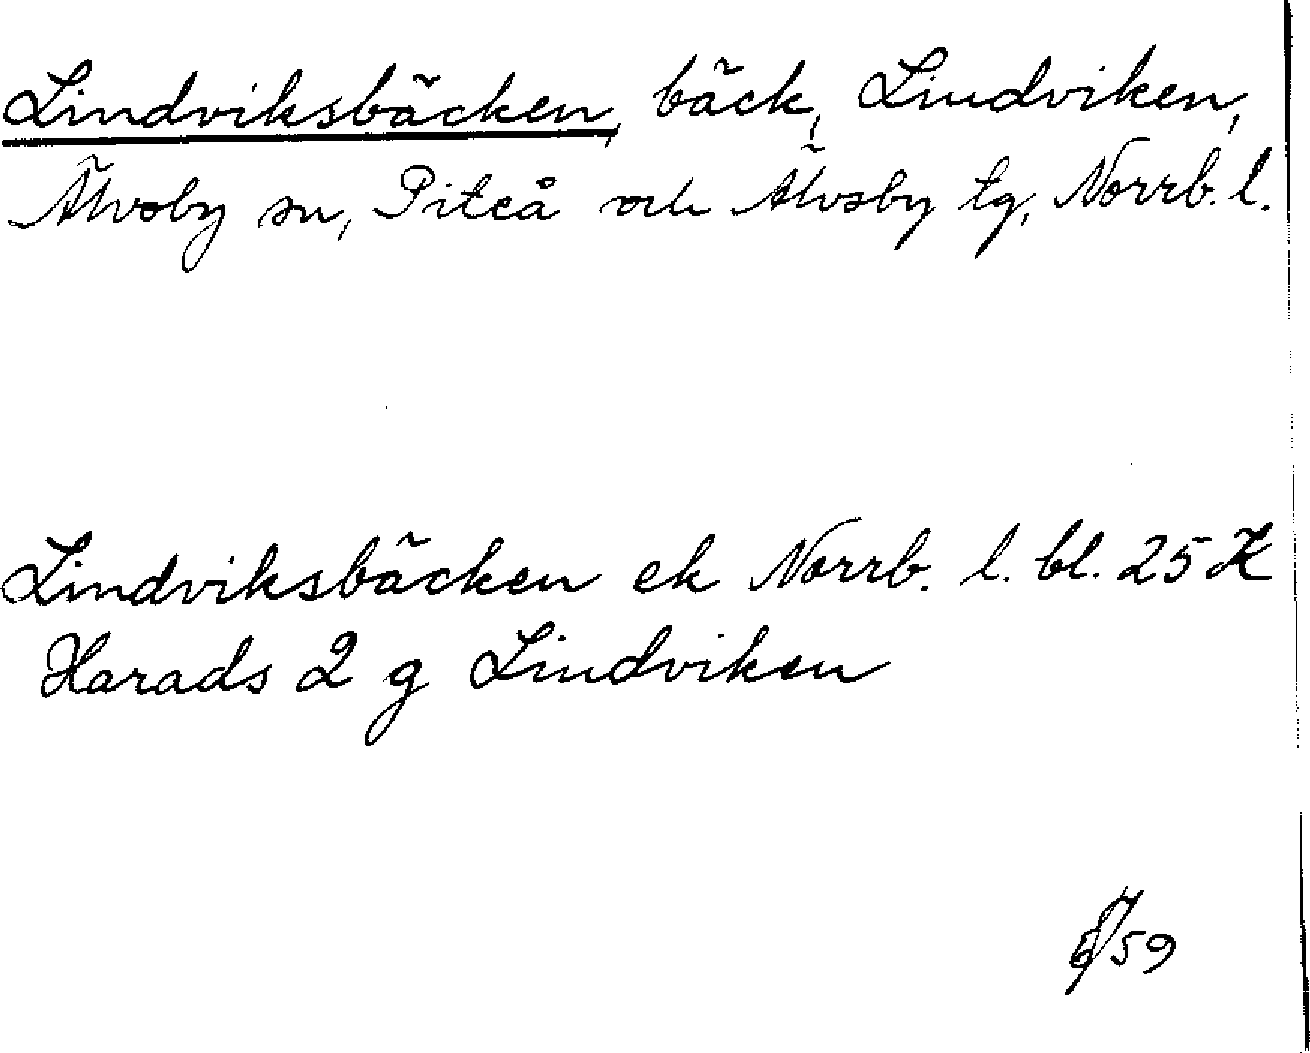 Lindviksbäcken, bäck, Lindviken,
Älvsby sn, Piteå och Älvsby tg, Norrb. l.
Lindviksbäcken ek Norrb. l. bl. 25 K
Harads 2 g Lindviken
59